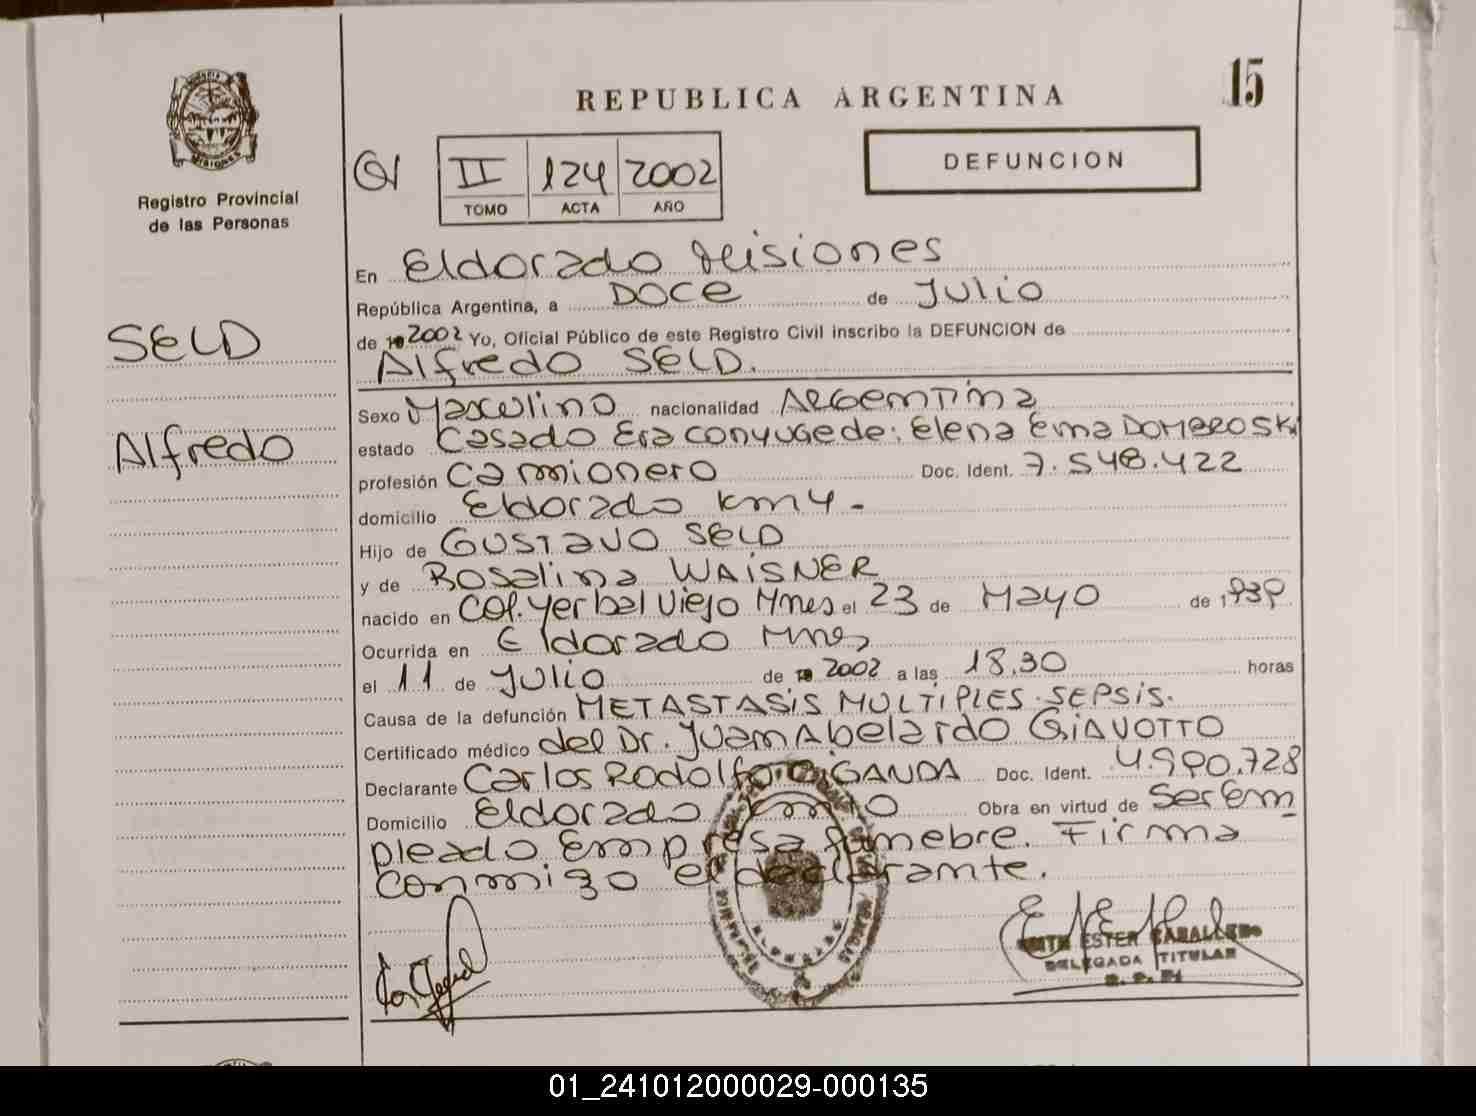 REPUBLICA ARGENTINA
15
MISIONES
Registro Provincial
de las Personas
II 124 2002
TOMO ACTA AÑO
DEFUNCION
SELD
Alfredo
En Eldorado Misiones
República Argentina, a DOCE de Julio
de 2002 Yo, Oficial Público de este Registro Civil inscribo la DEFUNCION de
Alfredo SELD.
Sexo Masculino nacionalidad Argentina
estado Casado Era conyuge de: Elena Ema DOMBROSKI
profesión Camionero Doc. Ident. 7.548.422
domicilio Eldorado km 4.-
Hijo de GUSTAVO SELD
y de Rosalina WAISNER
nacido en Col. Yerbal Viejo Mnes el 23 de Mayo de 1939
Ocurrida en Eldorado Mnes
el 11 de Julio de 2002 a las 18.30 horas
Causa de la defunción METASTASIS MULTIPLES. SEPSIS.
Certificado médico del Dr. Juan Abelardo GIAVOTTO
Declarante Carlos Rodolfo GANDA Doc. Ident. 4.990.728
Domicilio Eldorado km Obra en virtud de Ser Em
pleado Empresa funebre. Firma
conmigo el declarante.
ESTER CABALLERO
DELEGADA TITULAR
01_241012000029-000135